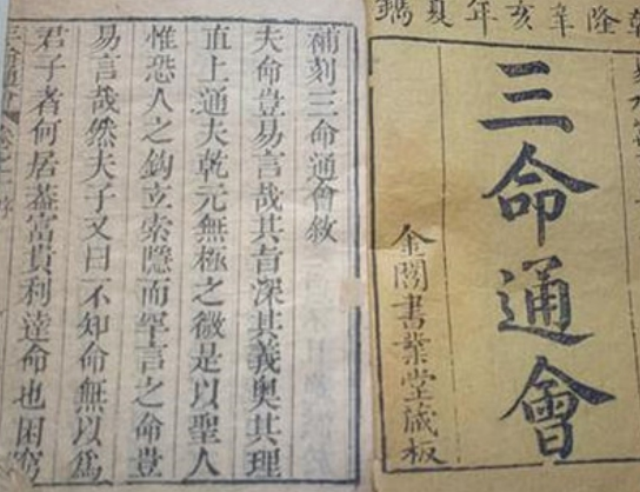 隆辛亥年夏鐫
三命通會
金閶書業堂藏板
補刻三命通會敘
夫命豈易言哉其旨深其義奧其理
直上通夫乾元無極之微是以聖人
惟恐人之鈎立索隱而罕言之命豈
易言哉然夫子又曰不知命無以爲
君子者何居葢富貴利達命也困窮
三命通會